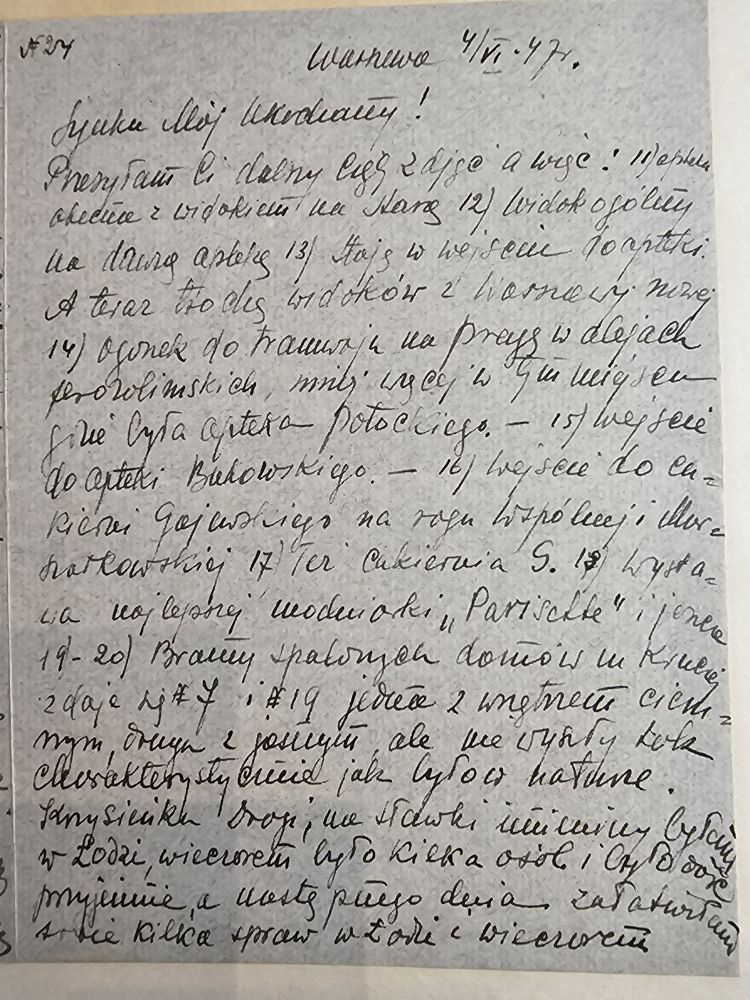 № 24
Warszawa 4/VI.47r.
Synku Mój Ukochany!
Przesyłam Ci dalszy ciąg zdjęć a więc: 11) apteka
obecna z widokiem na Starą 12) Widok ogólny
na dawną aptekę 13) Stoję w wejściu do apteki.
A teraz trochę widoków z Warszawy nowej
14) ogonek do tramwaju na Pragę w alejach
Jerozolimskich, mniej więcej w tym miejscu
gdzie była apteka Potockiego. — 15) wejście
do apteki Bukowskiego. — 16) wejście do cu=
kierni Gajewskiego na rogu Wspólnej i Mar=
szałkowskiej 17) Też cukiernia G. 18) wysta=
wa najlepszej modniarki „Parisette" i
19-20) Bramy spalonych domów na Kruczej
zdaje się # 7 i # 19 jedna z wnętrzem ciem=
nym, druga z jasnym, ale nie wyszły tak
charakterystycznie jak było w naturze.
Krysieńku Drogi, na Sławki imieniny byłam
w Łodzi, wieczorem było kilka osób i było dość
przyjemnie, a następnego dnia załatwiłam
sobie kilka spraw w Łodzi i wieczorem